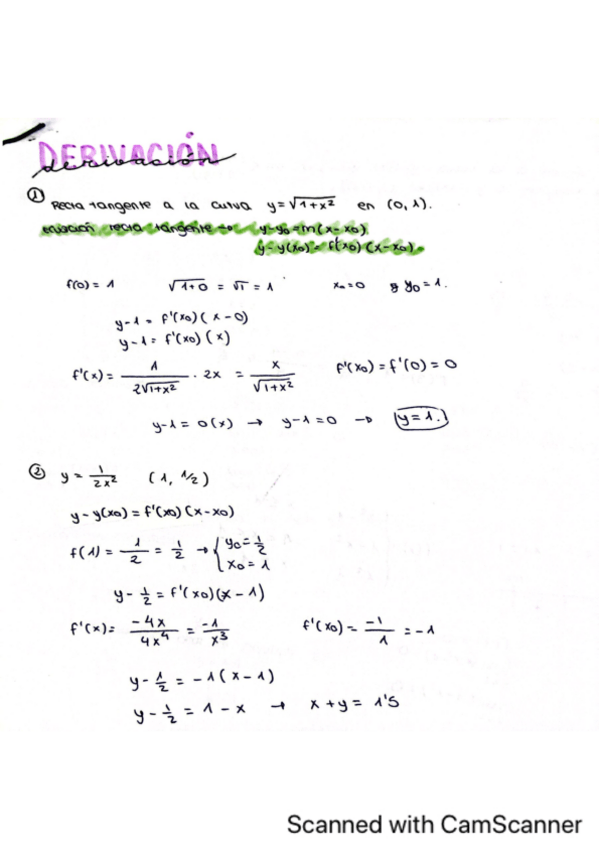 DERIVACIÓN
derivación
① Recta tangente a la curva y=√1+x² en (0,1).
ecuación recta tangente → y-y₀=m(x-x₀)
y-y(x₀)=f'(x₀)(x-x₀).
f(0)=1 √1+0 = √1 = 1 x₀=0 y y₀=1.
y-1 = f'(x₀)(x-0)
y-1= f'(x₀)(x)
f'(x)= 1/2√1+x² · 2x = x/√1+x² f'(x₀)=f'(0)=0
y-1=0(x) → y-1=0 → y=1.
② y= 1/2x² (1, 1/2)
y-y(x₀)=f'(x₀)(x-x₀)
f(1)= 1/2 = 1/2 → { y₀=1/2
x₀=1
y- 1/2 = f'(x₀)(x-1)
f'(x)= -4x/4x⁴ = -1/x³ f'(x₀)= -1/1 = -1
y- 1/2 = -1(x-1)
y- 1/2 = 1-x → x+y= 1'5
Scanned with CamScanner